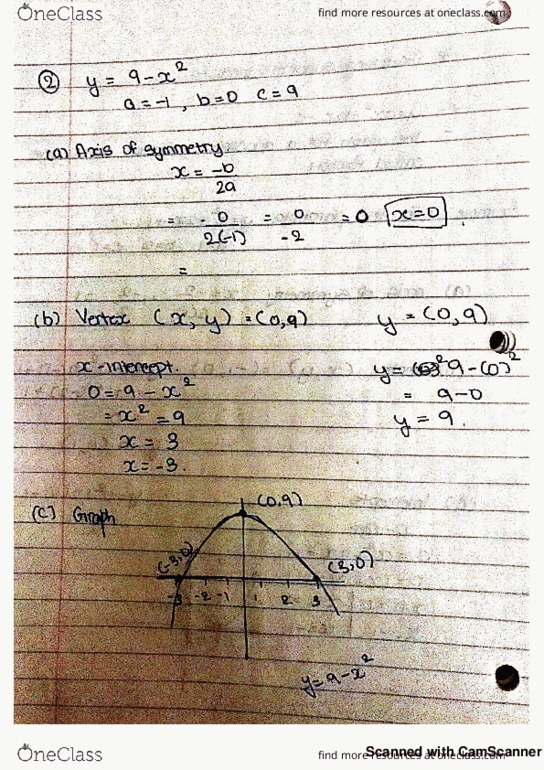 OneClass
find more resources at oneclass.com
② y = 9-x²
a=-1, b=0 c=9
(a) Axis of symmetry
x = -b/2a
= -0/2(-1) = 0/-2 = 0 x=0
=
(b) Vertex (x, y) = (0,9) y = (0,9)
x-intercept. y = 9-(0)²
0 = 9 - x² = 9-0
= x² = 9 y = 9.
x = 3
x = -3.
(c) Graph
(0,9)
(-3,0) (3,0)
-3 -2 -1 1 2 3
y=9-x²
OneClass
find more resources at oneclass.com
Scanned with CamScanner